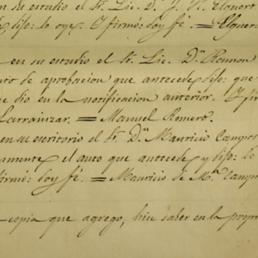 en su estudio el Sr. Lic. D. J. Y. Elguero
dijo: lo oye. Y firmó: doy fé. = Elguero
en su estudio el Sr. Lic. Dn. Ramon
de aprobacion que antecede, dijo: que
dio en la notificacion anterior. Y fir
Larrainzar. = Manuel Romero.
en su escritorio el Sr. Dn. Mauricio Campos
el auto que antecede y dijo: lo
firmó: doy fé. = Mauricio de M. Camp
copia que agrego, hice saber en la propi